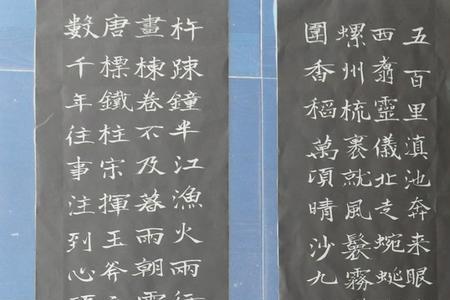 五百里滇池奔来眼
西翥靈儀北走蜿蜒
螺州梳裹就風鬟霧
圍香稻萬頃晴沙九
杵踈鐘半江漁火兩行
畫棟卷不及暮雨朝雲
唐標鐵柱宋揮玉斧
數千年往事注到心